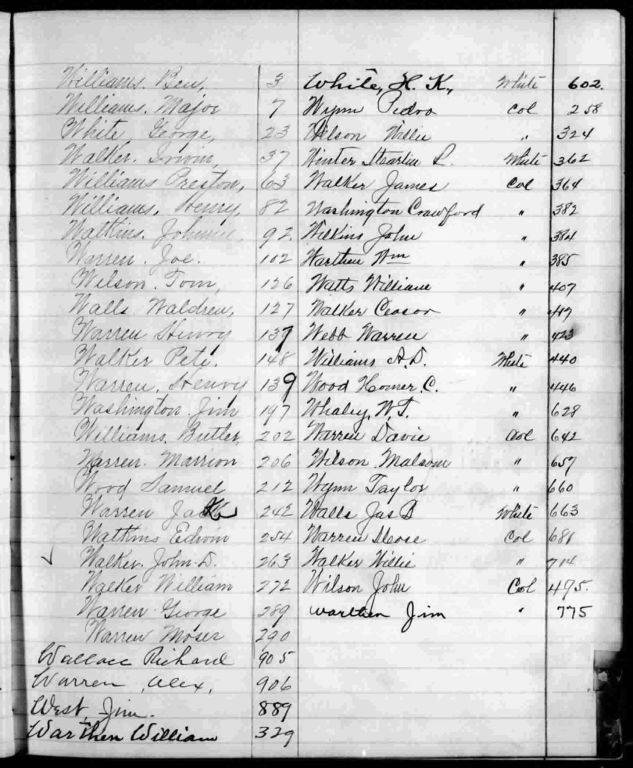 Williams. Ben, 3
Williams. Major 7
White, George, 23
Walker. Irwin, 37
Williams Preston, 63
Williams, Henry, 82
Watkins. Johnnie 92
Warren, Joe. 102
Wilson. Tom, 126
Walls Waldren, 127
Warren Henry 137
Walker Pete, 148
Warren, Henry 139
Washington Jim 197
Williams, Butler, 202
Warren. Marrion 206
Wood Samuel 212
Warren Jack 242
Watkins Edwin 254
Walker, John D. 263
Walker William 272
Warren George 289
Warren Moser 290
Wallace Richard 905
Warren, Alex, 906
West, Jim. 889
Warthen William 329
White, H. K, White 602.
Wynn Pedro Col 258
Wilson Willie " 324
Winter L. White 362
Walker James Col 364
Washington Crawford " 382
Wilkins John " 384
Warthen Wm " 385
Watts William " 407
Walker Ceasor "
Webb Warren " 423
Williams A. D. White 440
Wood Homer. C. " 446
Whaley, W. T. " 628
Warren Davie Col 642
Wilson Malsom " 657
Wynn Taylor " 660
Walls Jas B White 663
Warren Col 681
Walker Willie " 714
Wilson John Col 495.
Warthen Jim " 775